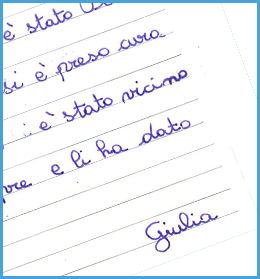 è stato
si è preso cura
è stato vicino
e li ha dato
Giulia